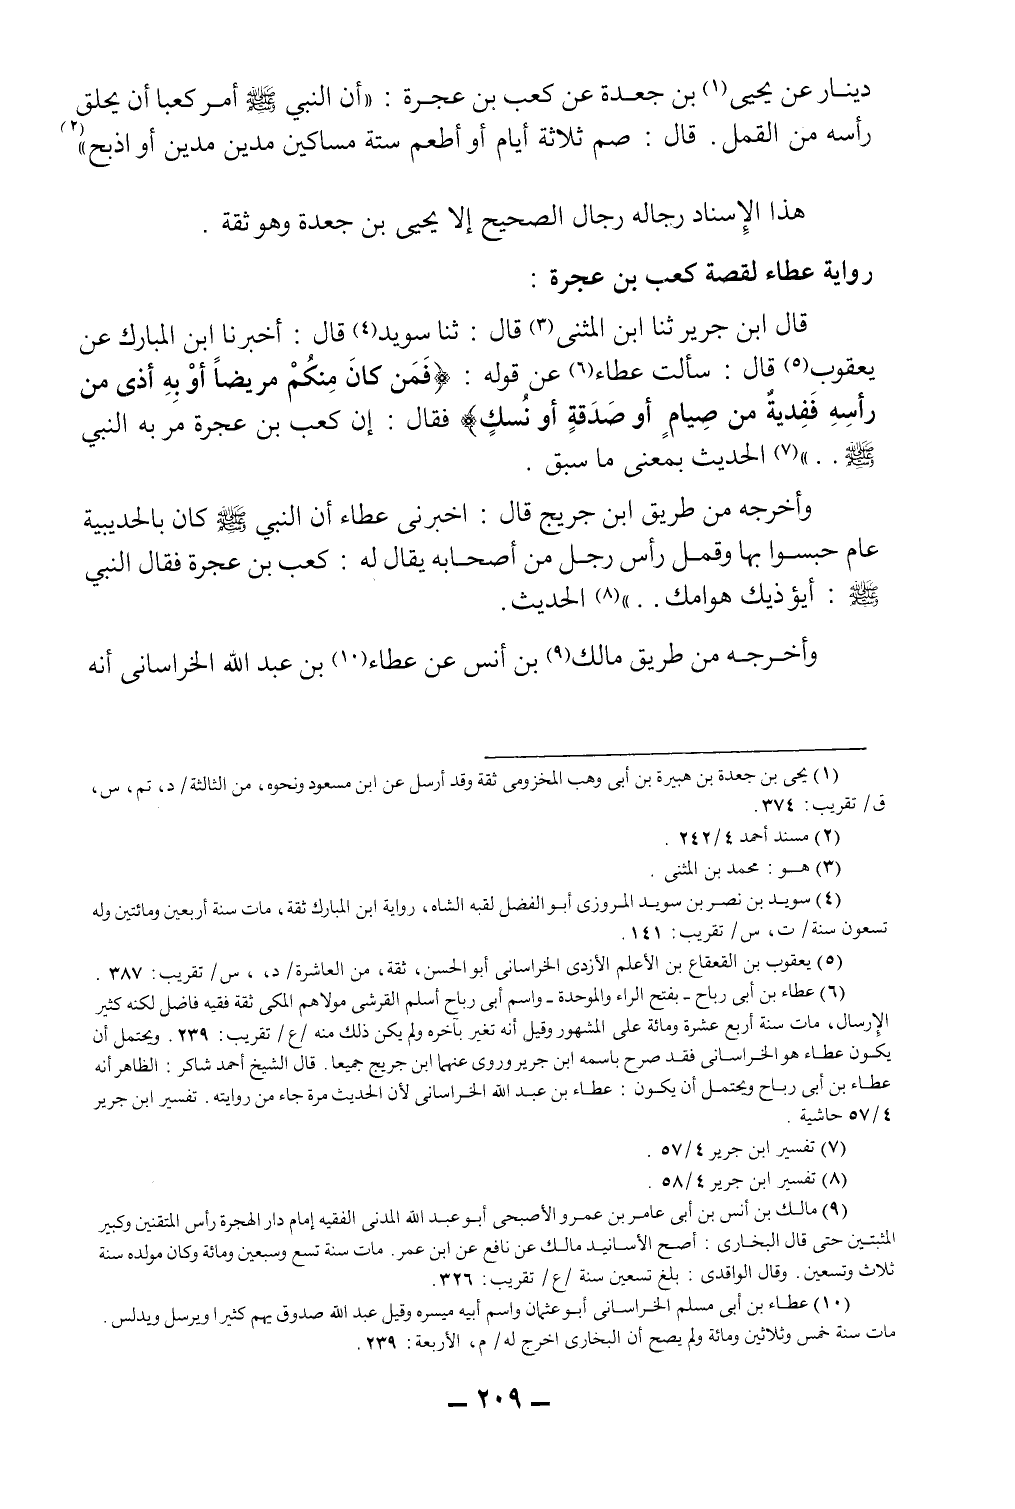 دينـار عن يحيى(١) بن جعـدة عن كعب بن عجـرة : «أن النبي ﷺ أمـر كعبا أن يحلق
رأسه من القمل. قال : صم ثلاثة أيام أو أطعم ستة مساكين مدين مدين أو اذبح»(٢)
هذا الإسناد رجاله رجال الصحيح إلا يحيى بن جعدة وهو ثقة .
رواية عطاء لقصة كعب بن عجرة :
قال ابن جرير ثنا ابن المثنى(٣) قال : ثنا سويد(٤) قال : أخبرنا ابن المبارك عن
يعقوب(٥) قال : سألت عطاء(٦) عن قوله : ﴿فَمَن كانَ مِنكُمْ مريضاً أوْ بِهِ أذى من
رأسِهِ فَفِديةٌ من صِيامٍ أو صَدَقةٍ أو نُسكٍ﴾ فقال : إن كعب بن عجرة مر به النبي
ﷺ . . »(٧) الحديث بمعنى ما سبق .
وأخرجه من طريق ابن جريج قال : اخبرنى عطاء أن النبي ﷺ كان بالحديبية
عام حبسـوا بها وقمـل رأس رجـل من أصحـابه يقال له : كعب بن عجرة فقال النبي
ﷺ : أيؤذيك هوامك . . »(٨) الحديث.
وأخـرجـه من طريق مالك(٩) بن أنس عن عطاء(١٠) بن عبد الله الخراسانى أنه
(١) يحيى بن جعدة بن هبيرة بن أبى وهب المخزومى ثقة وقد أرسل عن ابن مسعود ونحوه، من الثالثة/ د، تم، س،
ق/ تقريب: ٣٧٤.
(٢) مسند أحمد ٢٤٢/٤ .
(٣) هـو : محمد بن المثنى .
(٤) سويـد بن نصـر بن سويـد المـروزى أبـو الفضل لقبه الشاه، رواية ابن المبارك ثقة، مات سنة أربعين ومائتين وله
تسعون سنة/ ت، س/ تقريب: ١٤١ .
(٥) يعقوب بن القعقاع بن الأعلم الأزدى الخراسانى أبو الحسن، ثقة، من العاشرة/ د، ، س/ تقريب: ٣٨٧ .
(٦) عطاء بن أبى رباح ـ بفتح الراء والموحدة ـ واسم أبى رباح أسلم القرشى مولاهم المكى ثقة فقيه فاضل لكنه كثير
الإرسال، مات سنة أربع عشرة ومائة على المشهور وقيل أنه تغير بآخره ولم يكن ذلك منه /ع/ تقريب: ٢٣٩ . ويحتمل أن
يكـون عطـاء هو الخـراسـانى فقـد صرح باسمه ابن جرير وروى عنهما ابن جريج جميعا. قال الشيخ أحمد شاكر : الظاهر أنه
عطـاء بن أبى ربـاح ويحتمـل أن يكـون : عطـاء بن عبـد الله الخـراسانى لأن الحديث مرة جاء من روايته . تفسير ابن جرير
٥٧/٤ حاشية .
(٧) تفسير ابن جرير ٥٧/٤ .
(٨) تفسير ابن جرير ٥٨/٤ .
(٩) مالـك بن أنس بن أبى عامـر بن عمـرو الأصبحى أبـو عبـد الله المدنى الفقيه إمام دار الهجرة رأس المتقنين وكبير
المثبتـين حتى قال البخـارى : أصـح الأسانيـد مالـك عن نافع عن ابن عمر. مات سنة تسع وسبعين ومائة وكان مولده سنة
ثلاث وتسعين . وقال الواقدى : بلغ تسعين سنة /ع/ تقريب: ٣٢٦.
(١٠) عطـاء بن أبى مسلم الخـراسـانى أبـو عثمان واسم أبيه ميسره وقيل عبد الله صدوق يهم كثيرا ويرسل ويدلس .
مات سنة خمس وثلاثين ومائة ولم يصح أن البخارى اخرج له/ م، الأربعة: ٢٣٩ .
ـ ٢٠٩ ـ